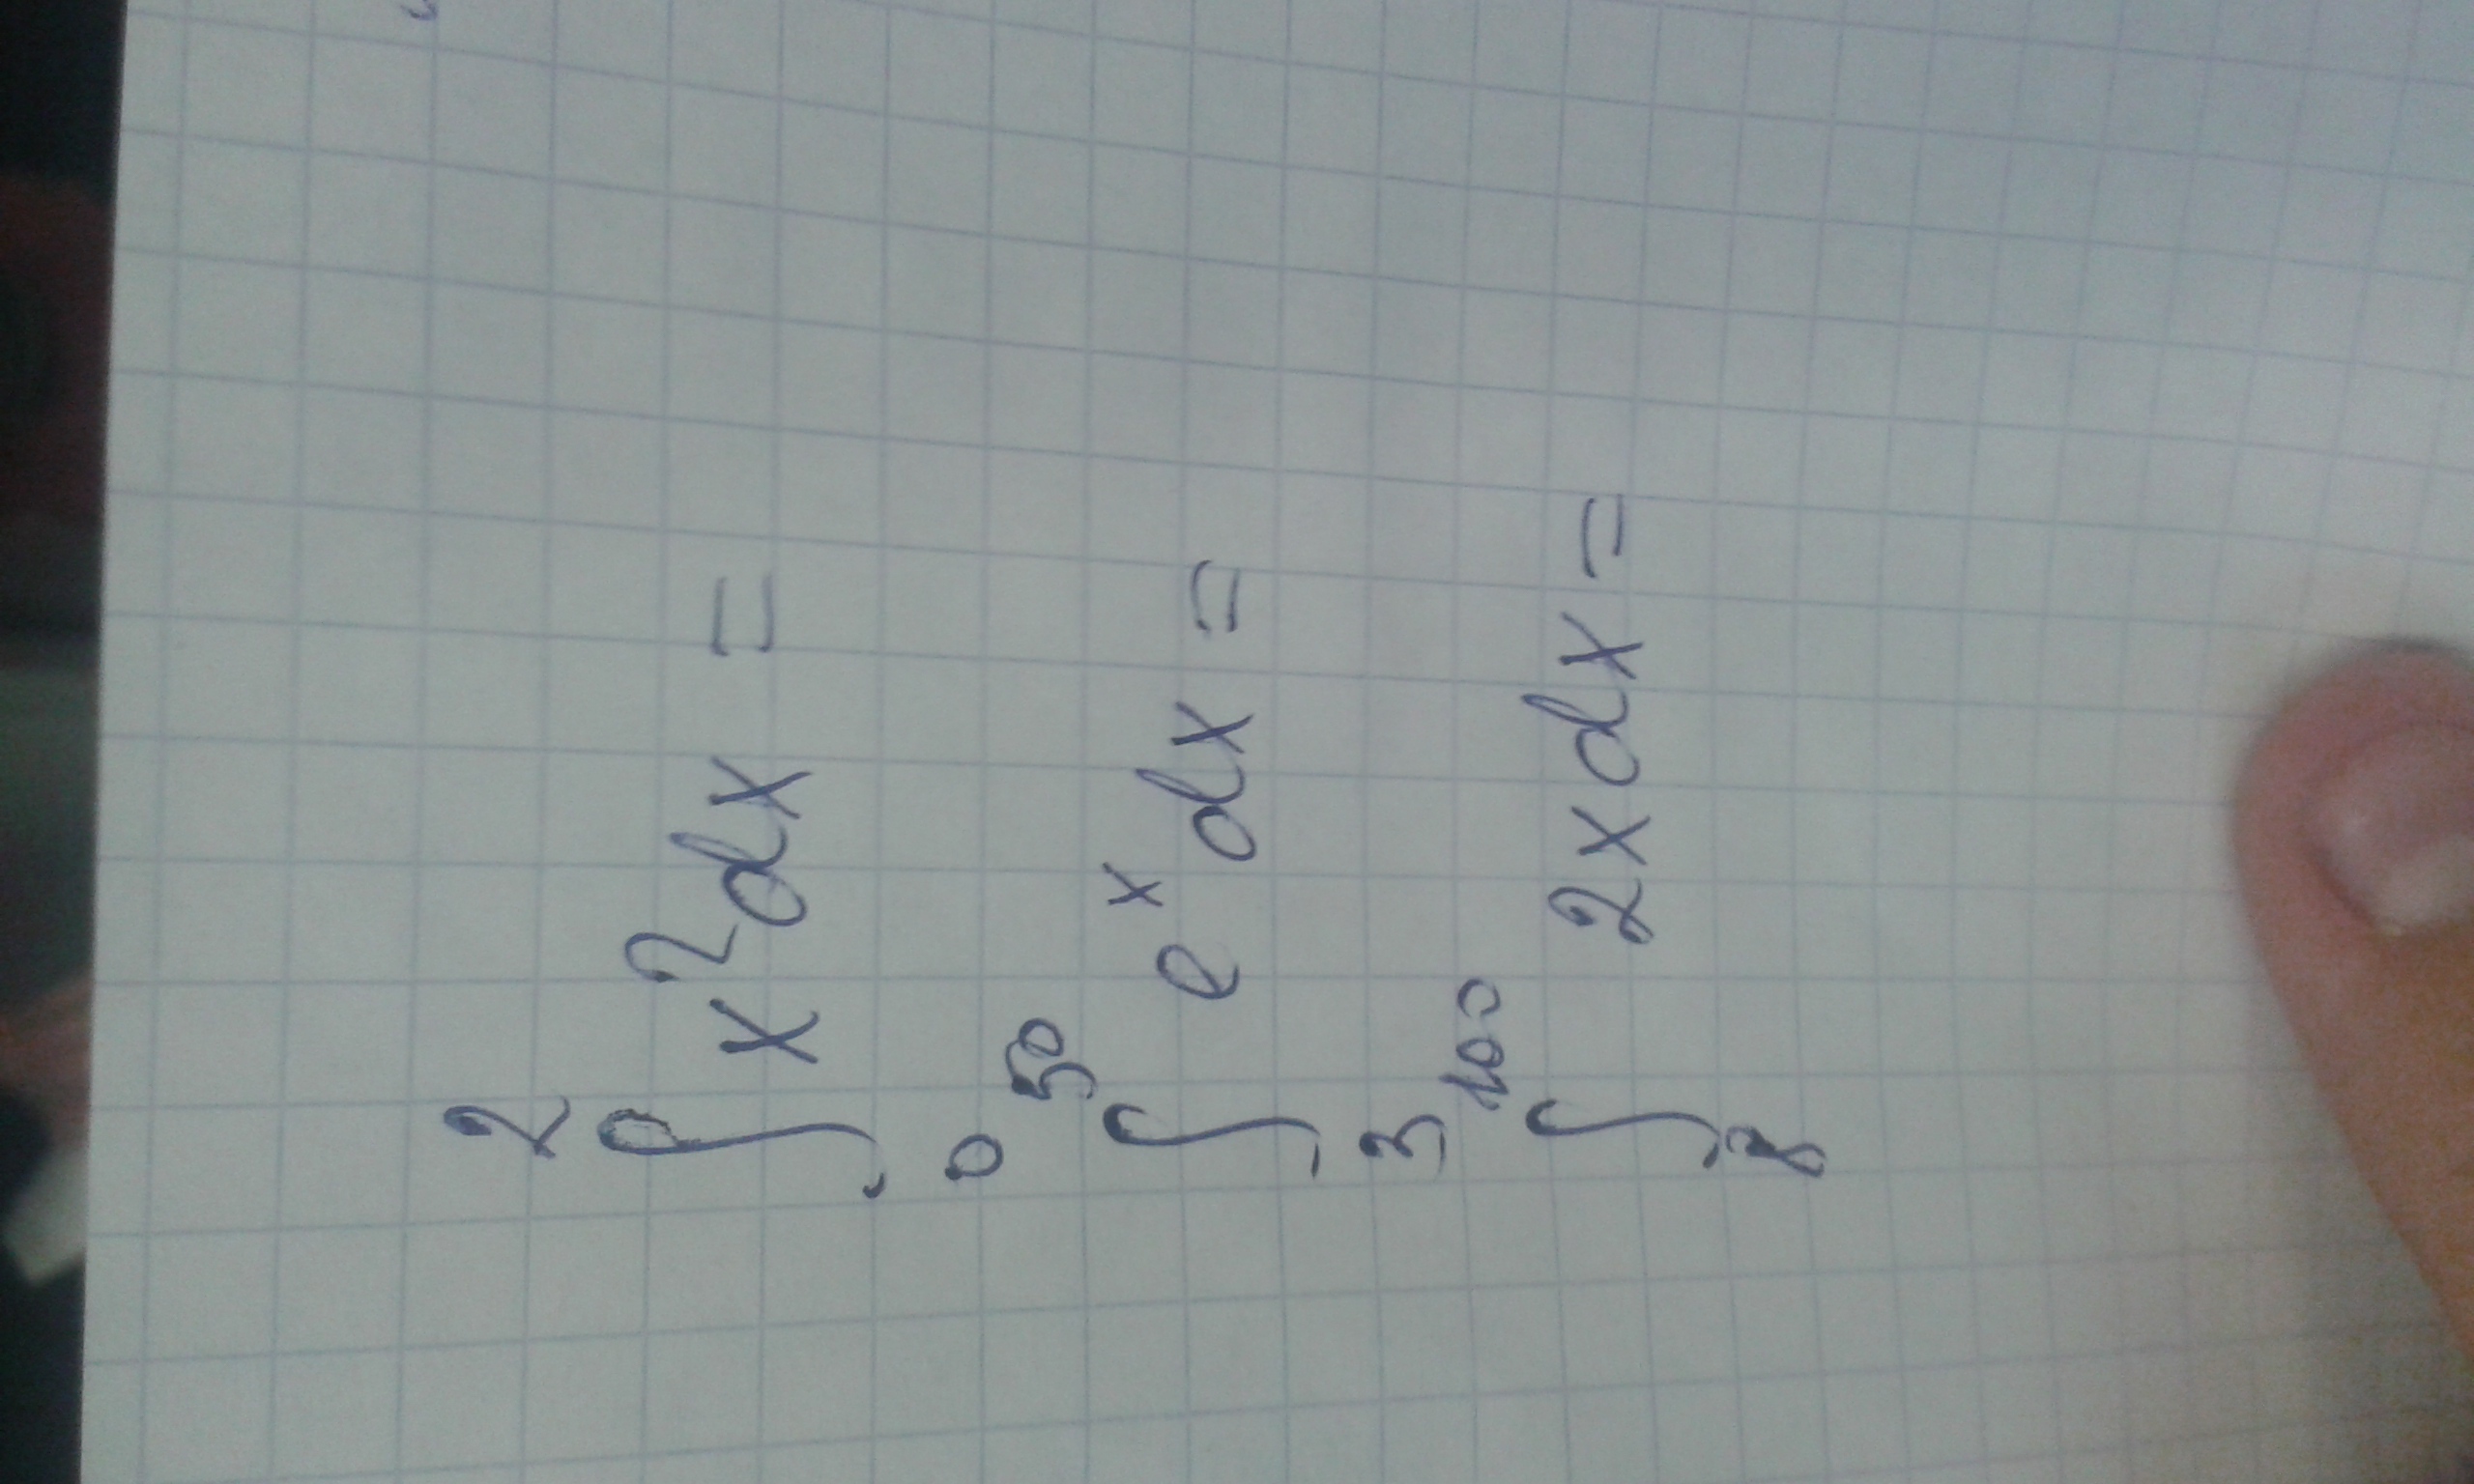 ∫₀² x² dx =
∫₃⁵⁰ eˣ dx =
∫₈¹⁰⁰ 2x dx =